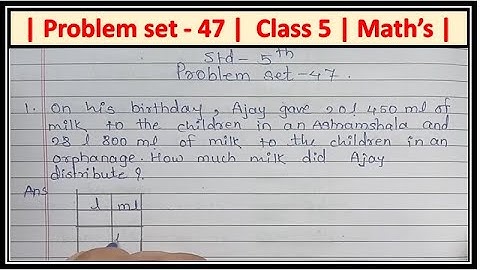 | Problem set - 47 | Class 5 | Math's |
Std - 5th
Problem set - 47.
1. On his birthday, Ajay gave 20l 450 ml of
milk to the children in an Ashramshala and
28 l 800 ml of milk to the children in an
orphanage. How much milk did Ajay
distribute?
Ans
l ml